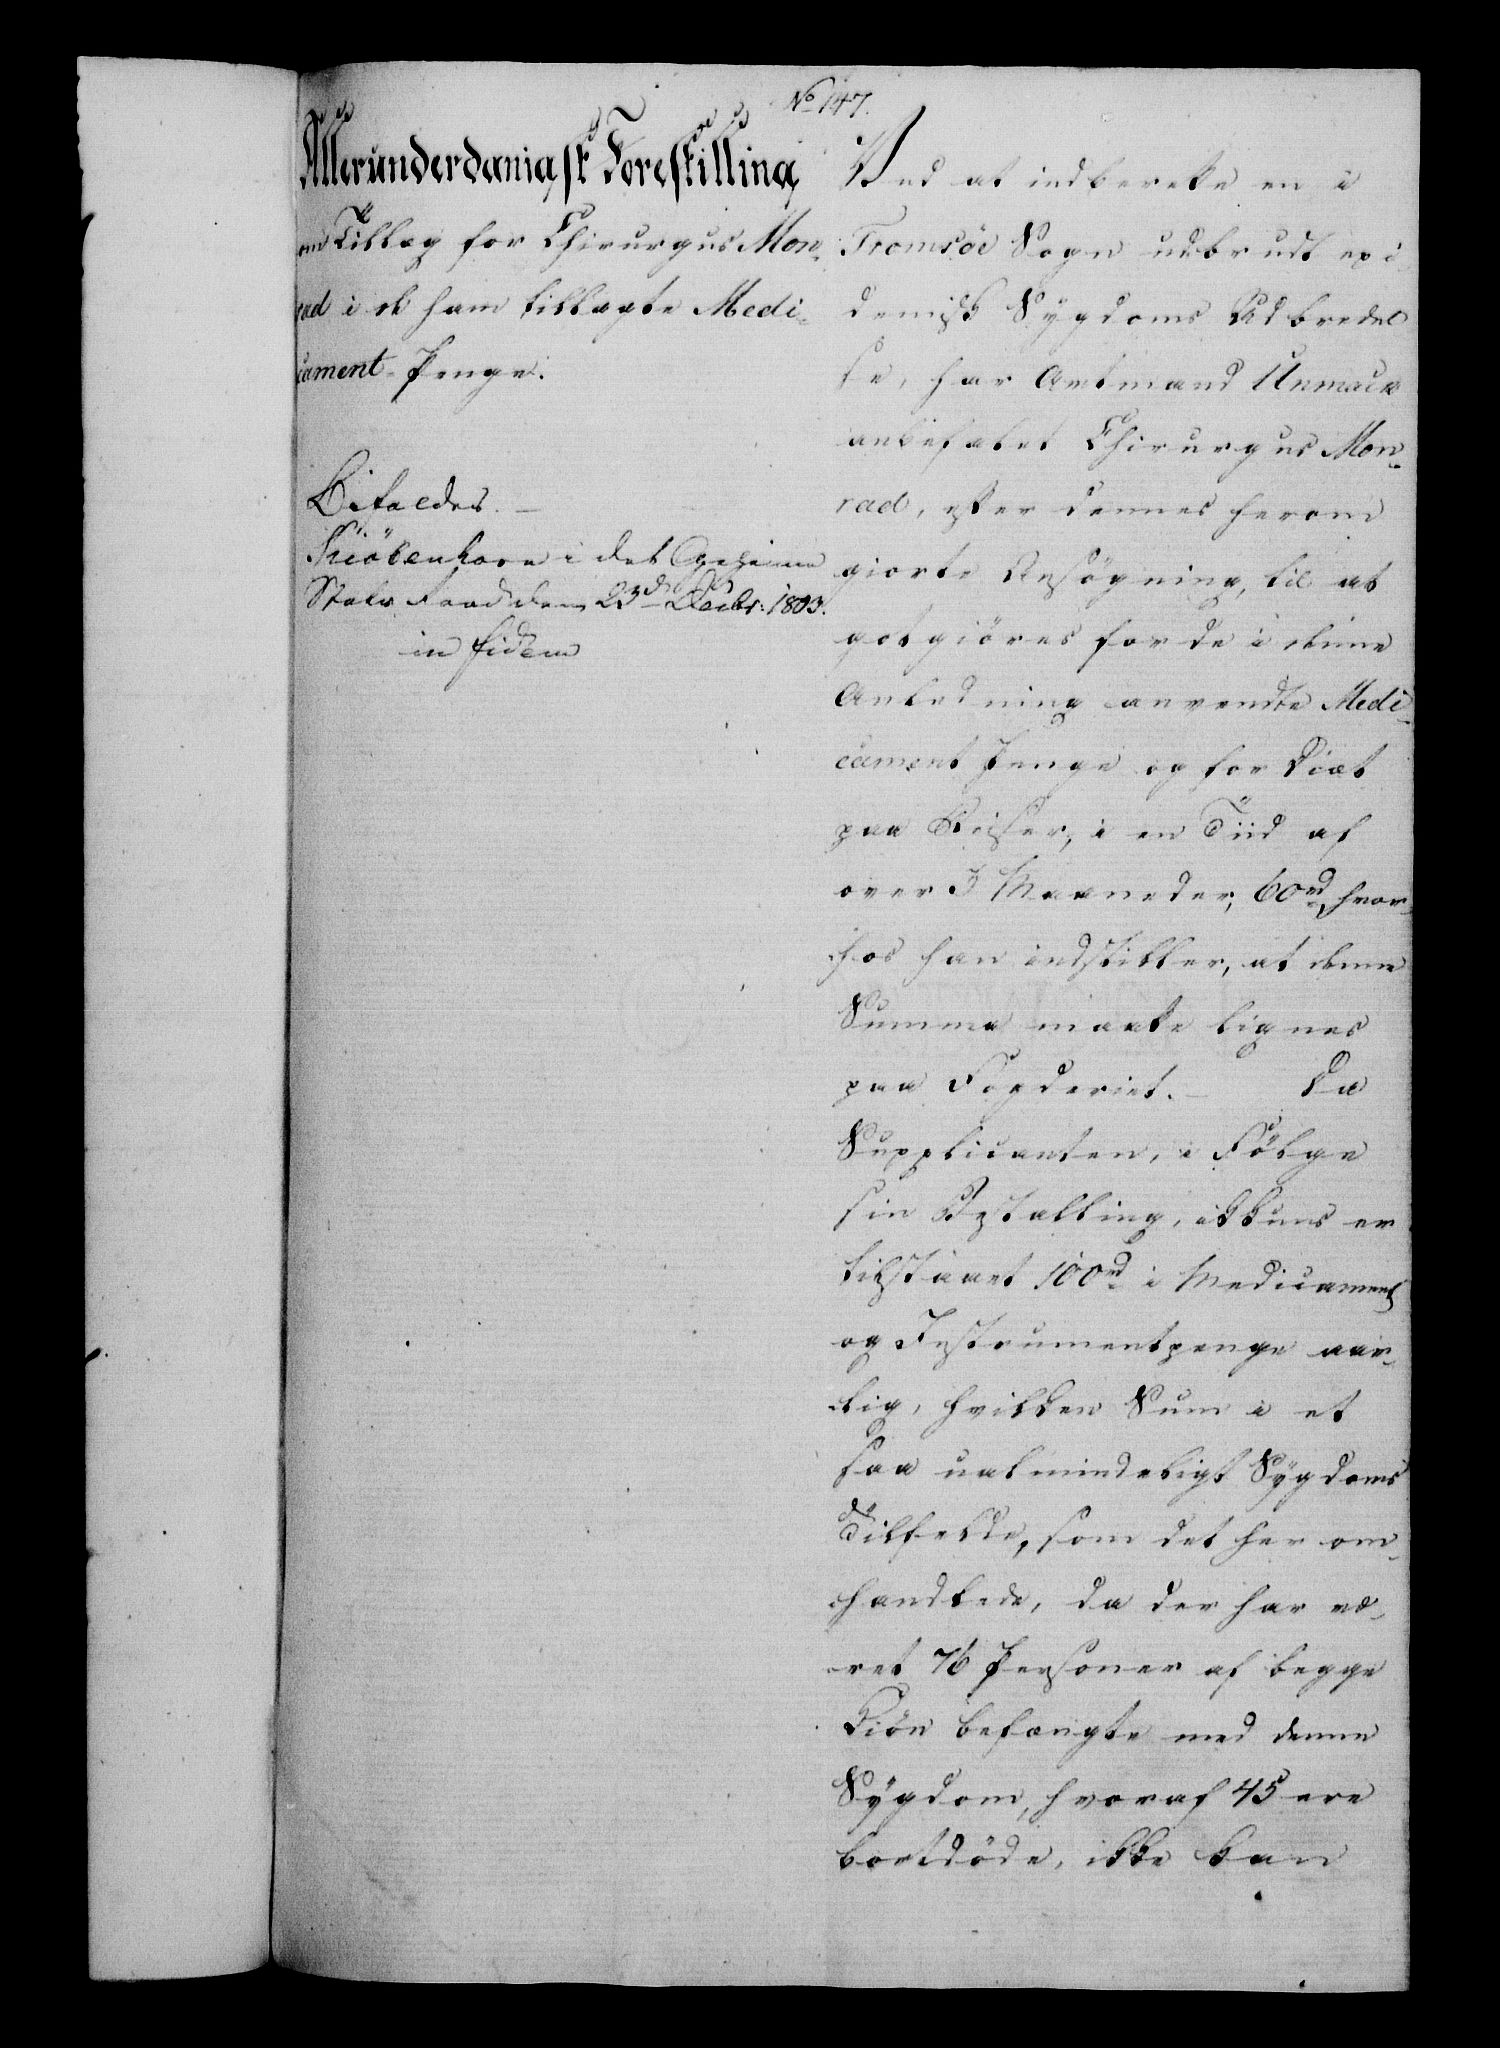 No 147.
Allerunderdanigst Forestilling
om Tillæg for Chirurgus Mon-
rad i de ham tillagte Medi-
cament-Penge.
Bifaldes. –
Kiöbenhavn i det Geheime
Stats Raad den 23d Decbr: 1803.
in fidem
Ved at indberette en i
Tromsöe Sogn udbrudt epi-
demisk Sygdoms Udbredel
se, har Amtmand Unmack
anbefalet Chirurgus Mon-
rad, efter dennes herom
giorte Ansögning, til at
godtgiöres for de i denne
Anledning anvendte Medi-
cament Penge og for Diæt
paa Reiser, i en Tiid af
over 3 Maaneder, 60 rd, hvor-
hos han indstiller, at denne
Summa maatte lignes
paa Fogderiet. – Da
Supplicanten, i Fölge
sin Bestalling, ikkuns er
tilstaaet 100 rd i Medicament
og Instrumentpenge aar-
lig, hvilken Sum i et
saa ualmindeligt Sygdoms
Tilfelde, som det her om-
handlede, da der har væ-
ret 76 Personer af begge
Kiön befængte med denne
Sygdom, hvoraf 45 ere
bortdöde, ikke kan